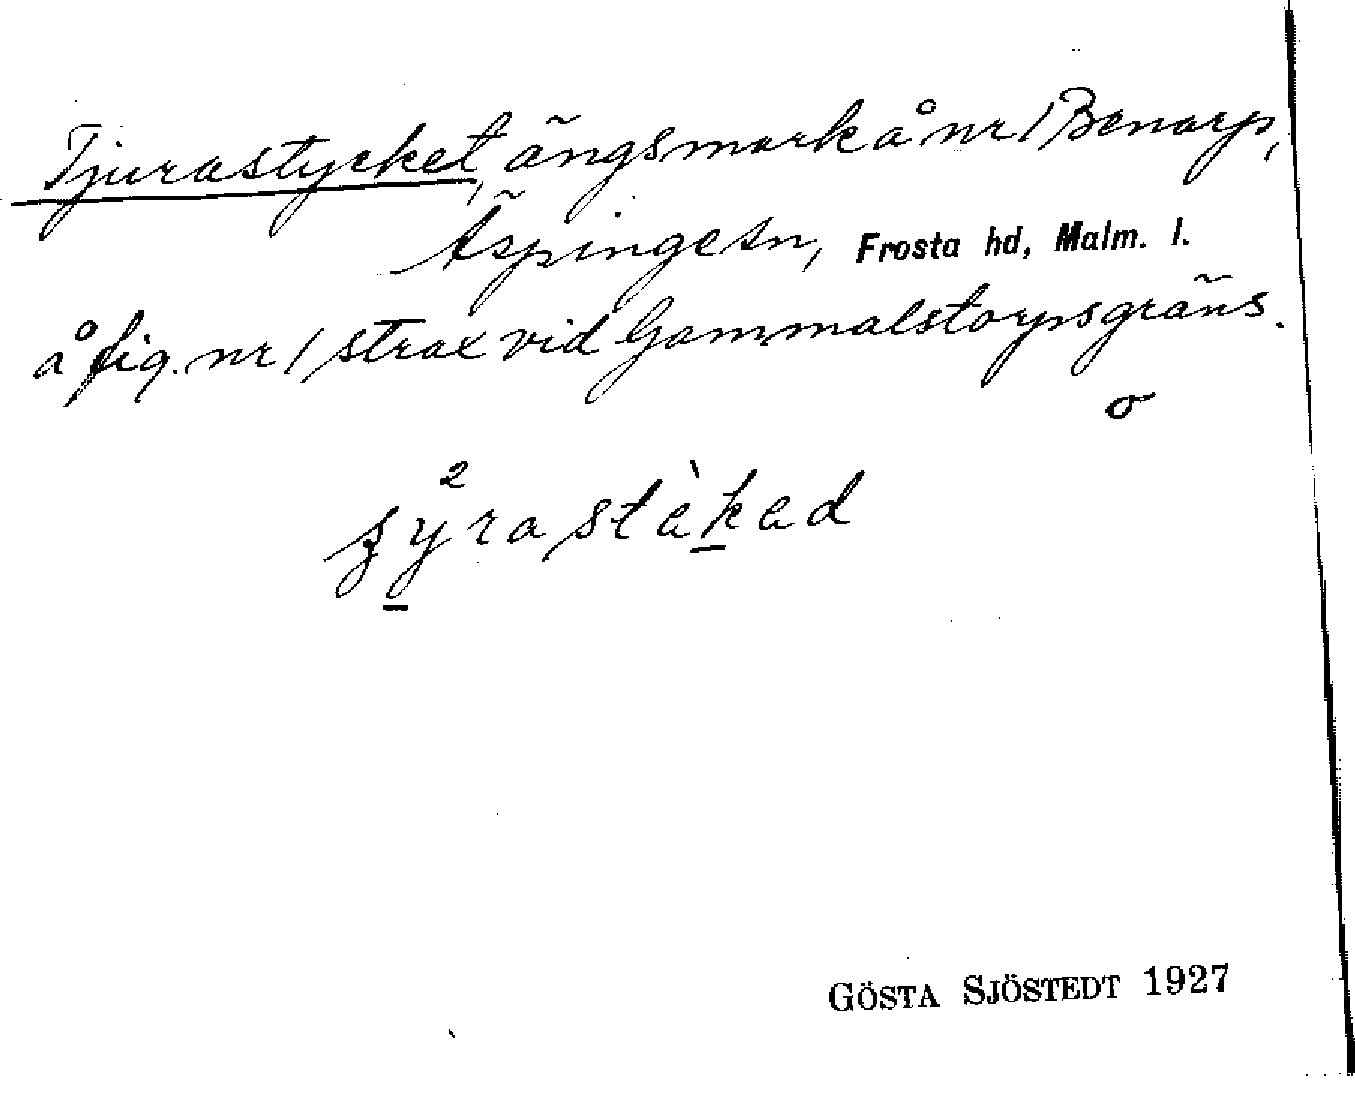 Tjurastycket, ängsmark å nr 1 Benarp,
Äspinge sn, Frosta hd, Malm. l.
å fig. nr 1 strax vid Gammalstorpsgräns.
GÖSTA SJÖSTEDT 1927